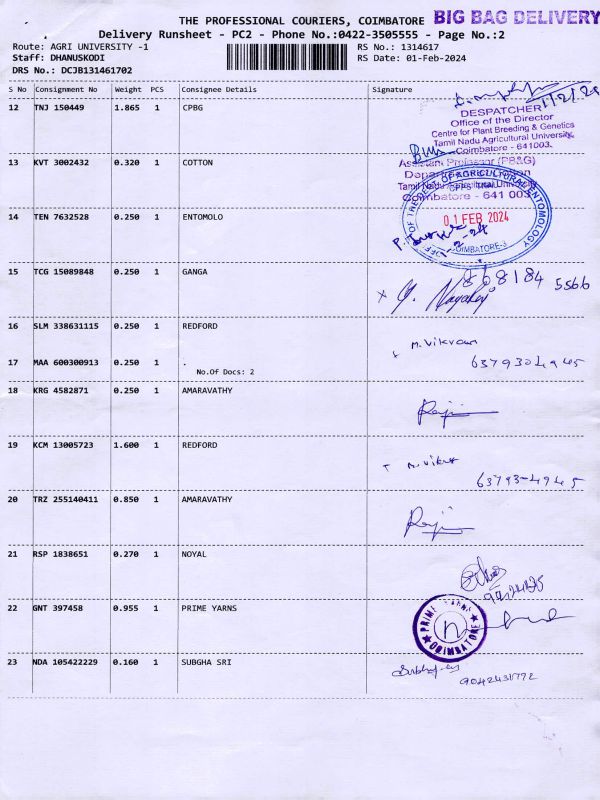 THE PROFESSIONAL COURIERS, COIMBATORE BIG BAG DELIVERY
Delivery Runsheet - PC2 - Phone No.:0422-3505555 - Page No.:2
Route: AGRI UNIVERSITY -1 RS No.: 1314617
Staff: DHANUSKODI RS Date: 01-Feb-2024
DRS No.: DCJB131461702
S No Consignment No Weight PCS Consignee Details Signature
12 TNJ 150449 1.865 1 CPBG
1/2/24
DESPATCHER
Office of the Director
Centre for Plant Breeding & Genetics
Tamil Nadu Agricultural University,
Coimbatore - 641003.
13 KVT 3002432 0.320 1 COTTON
Assistant Professor (PB&G)
Tamil Nadu Agricultural University
Coimbatore - 641 003
14 TEN 7632528 0.250 1 ENTOMOLO
OF AGRICULTURAL ENTOMOLOGY
01 FEB 2024
COIMBATORE-3
15 TCG 15089848 0.250 1 GANGA
868184 5566
16 SLM 338631115 0.250 1 REDFORD
M. Vikram
17 MAA 600300913 0.250 1 .
No.Of Docs: 2
18 KRG 4582871 0.250 1 AMARAVATHY
19 KCM 13005723 1.600 1 REDFORD
20 TRZ 255140411 0.850 1 AMARAVATHY
21 RSP 1838651 0.270 1 NOYAL
22 GNT 397458 0.955 1 PRIME YARNS
PRIME YARNS
n
COIMBATORE
23 NDA 105422229 0.160 1 SUBGHA SRI